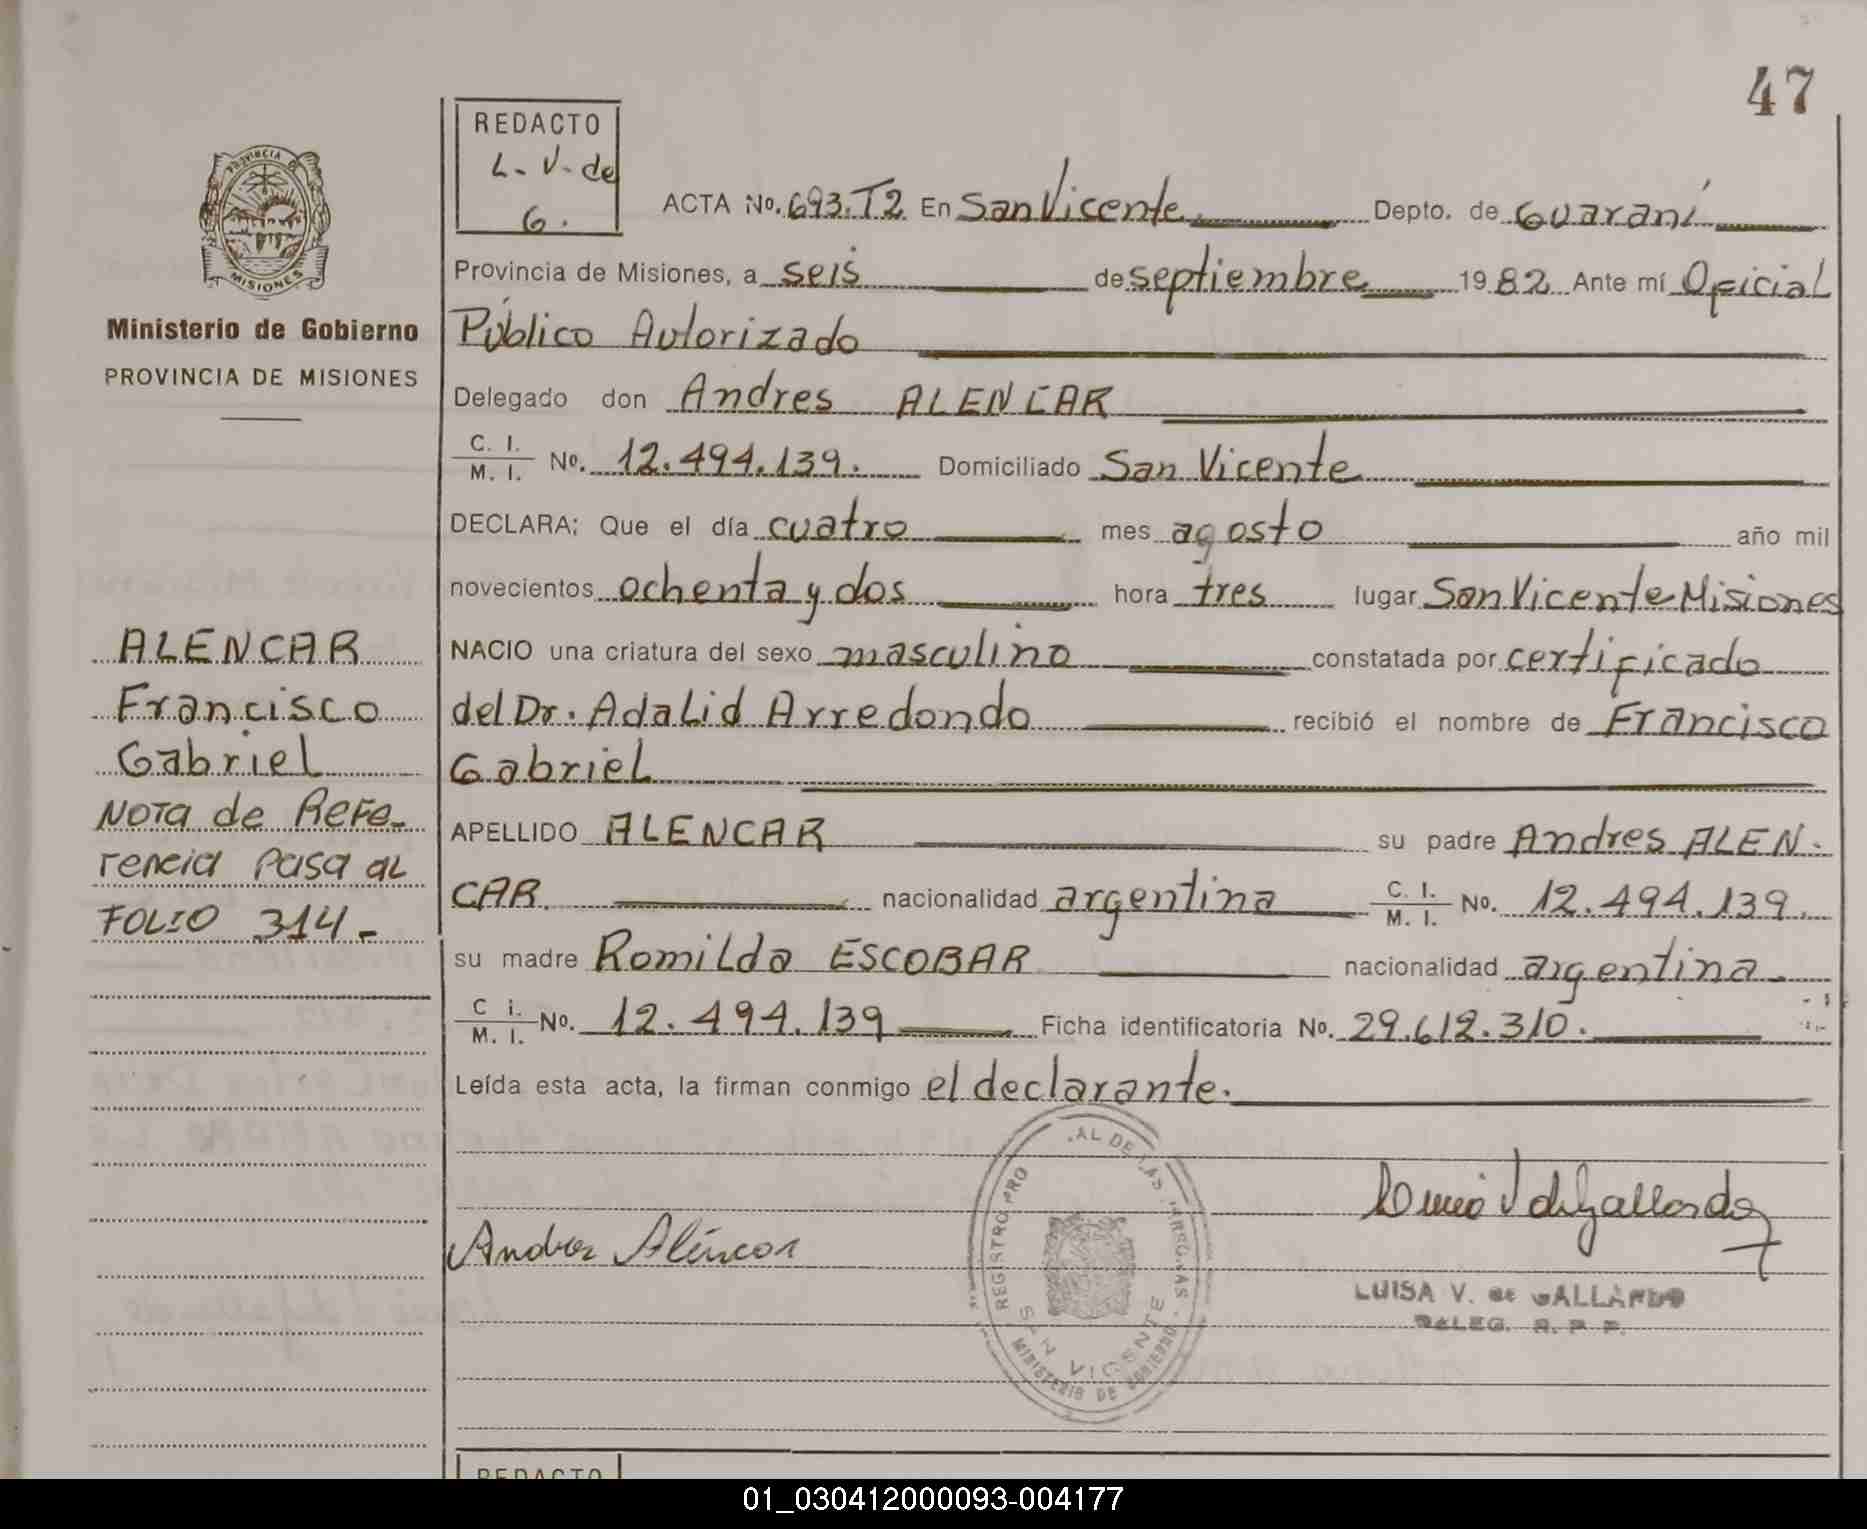 47
REDACTO
L. V. de
G.
ACTA No. 693.T2. En San Vicente Depto. de Guaraní
PROVINCIA DE MISIONES
Provincia de Misiones, a seis de septiembre 1982 Ante mí Oficial
Ministerio de Gobierno
PROVINCIA DE MISIONES
Público Autorizado
Delegado don Andres ALENCAR
C. I.
M. I. No. 12.494.139. Domiciliado San Vicente
DECLARA: Que el día cuatro mes agosto año mil
novecientos ochenta y dos hora tres lugar San Vicente Misiones
NACIO una criatura del sexo masculino constatada por certificado
del Dr. Adalid Arredondo recibió el nombre de Francisco
Gabriel
APELLIDO ALENCAR su padre Andres ALEN-
CAR. nacionalidad argentina C. I.
M. I. No. 12.494.139.
su madre Romilda ESCOBAR nacionalidad argentina.
C i.
M. I. No. 12.494.139 Ficha identificatoria No. 29.612.310.
Leída esta acta, la firman conmigo el declarante.
ALENCAR
Francisco
Gabriel
Nota de Refe-
rencia Pasa al
FOLIO 314-
Andres Alencar
REGISTRO PRO AL DE LAS
SAN VICENTE
MINISTERIO DE GOBIERNO
LUISA V. de GALLARDO
DELEG. R. P. P.
REDACTO
01_030412000093-004177